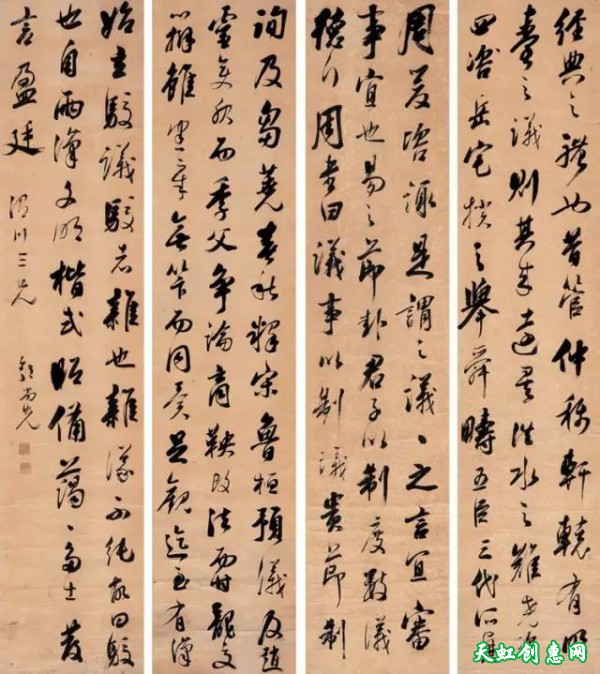 經典之體也昔管仲稱軒轅有明
臺之議則其來遠矣洪水之難堯咨
四咨岳宅揆之舉舜疇五臣三代所興
周爰咨諏是謂之議丶之言宜審
事宜也易之節卦君子以制度數議
德行周書曰議事以制議貴節制
詢及芻蕘春秋釋宋魯桓預議及趙
靈胡服而季父爭論商鞅改法而甘龍交
辨雖憲章無算而同異足觀迄至有漢
始立駮議駮者雜也雜議不純故曰駮
也自兩漢文明楷式昭備藹丶多士發
言盈廷 渭川三兄 郭尚先
天虹创惠网